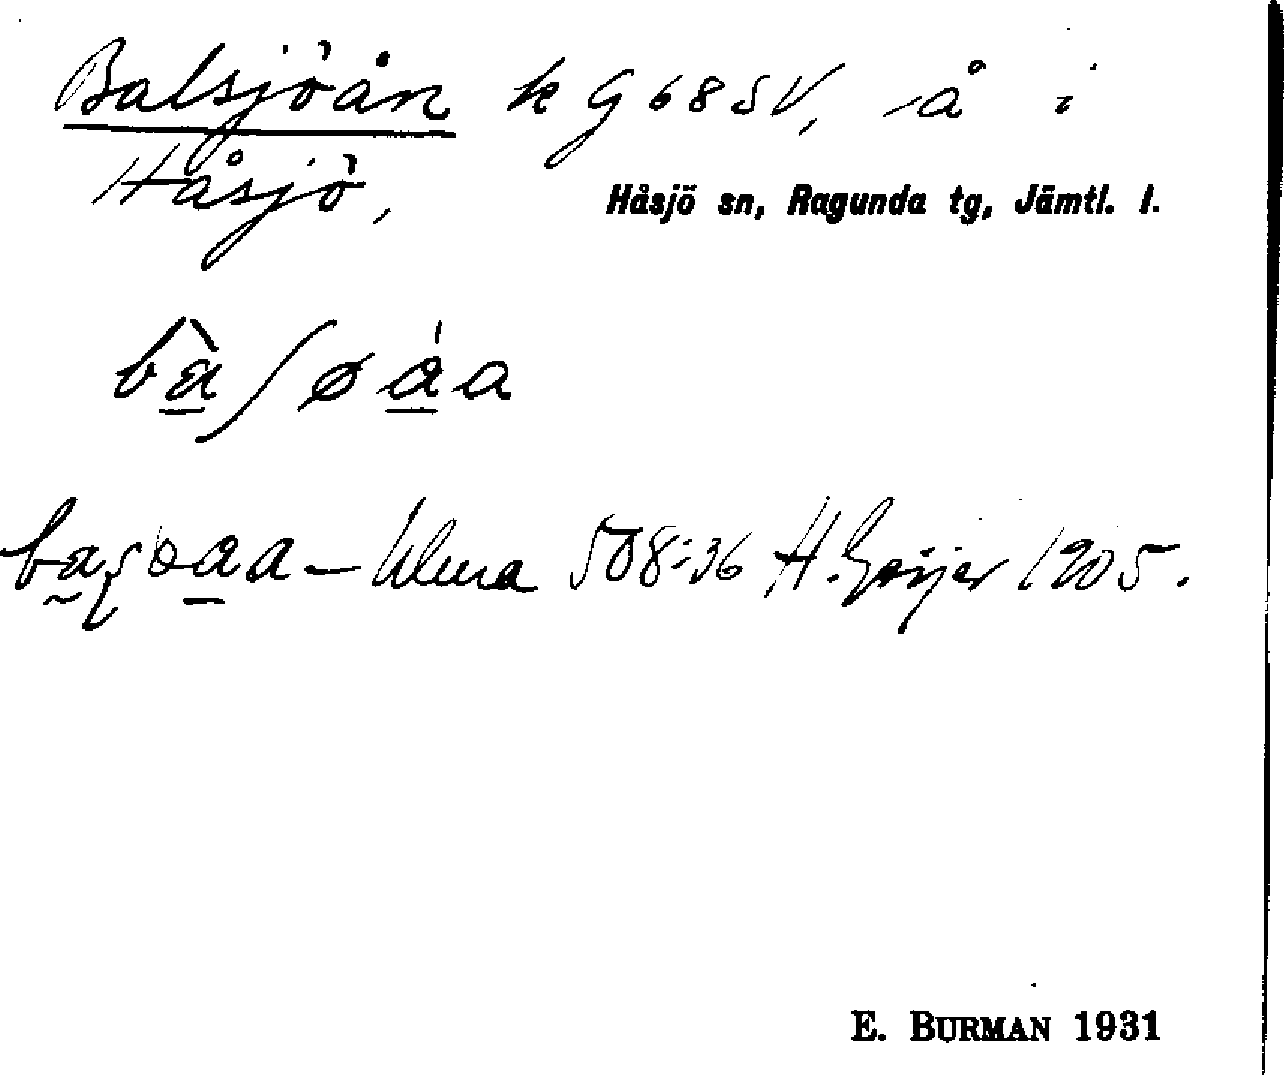 Balsjöån k G 68 SV, å i
Håsjö,
Håsjö sn, Ragunda tg, Jämtl. l.
baʃøåa
508:36 H. Geijer 1905.
E. BURMAN 1931